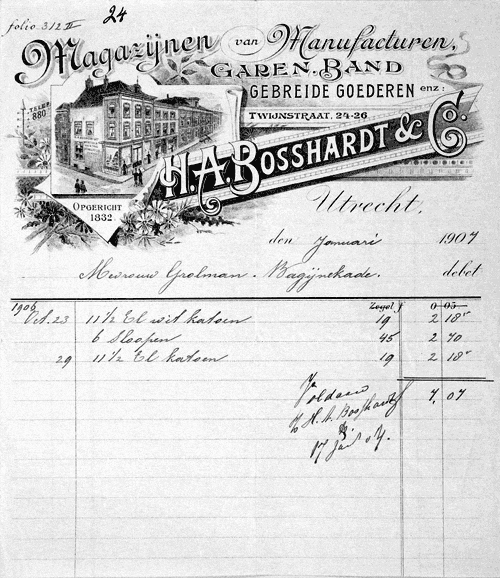 folio 312 II
24
Magazijnen van Manufacturen,
Garen. Band
Gebreide Goederen enz:
Twijnstraat, 24-26
TELEF. 880
H.A. Bosshardt & Co.
Opgericht 1832.
Utrecht,
den Januari 1907
Mevrouw Grolman. Bagijnekade. debet
Zegel f 0 05
1906
Oct. 23 11 1/2 El wit katoen 19 2 18⁵
6 Sloopen 45 2 70
29 11 1/2 El katoen 19 2 18⁵
f 7, 07
Voldaan
H. A. Bosshardt
17 Jan 07.